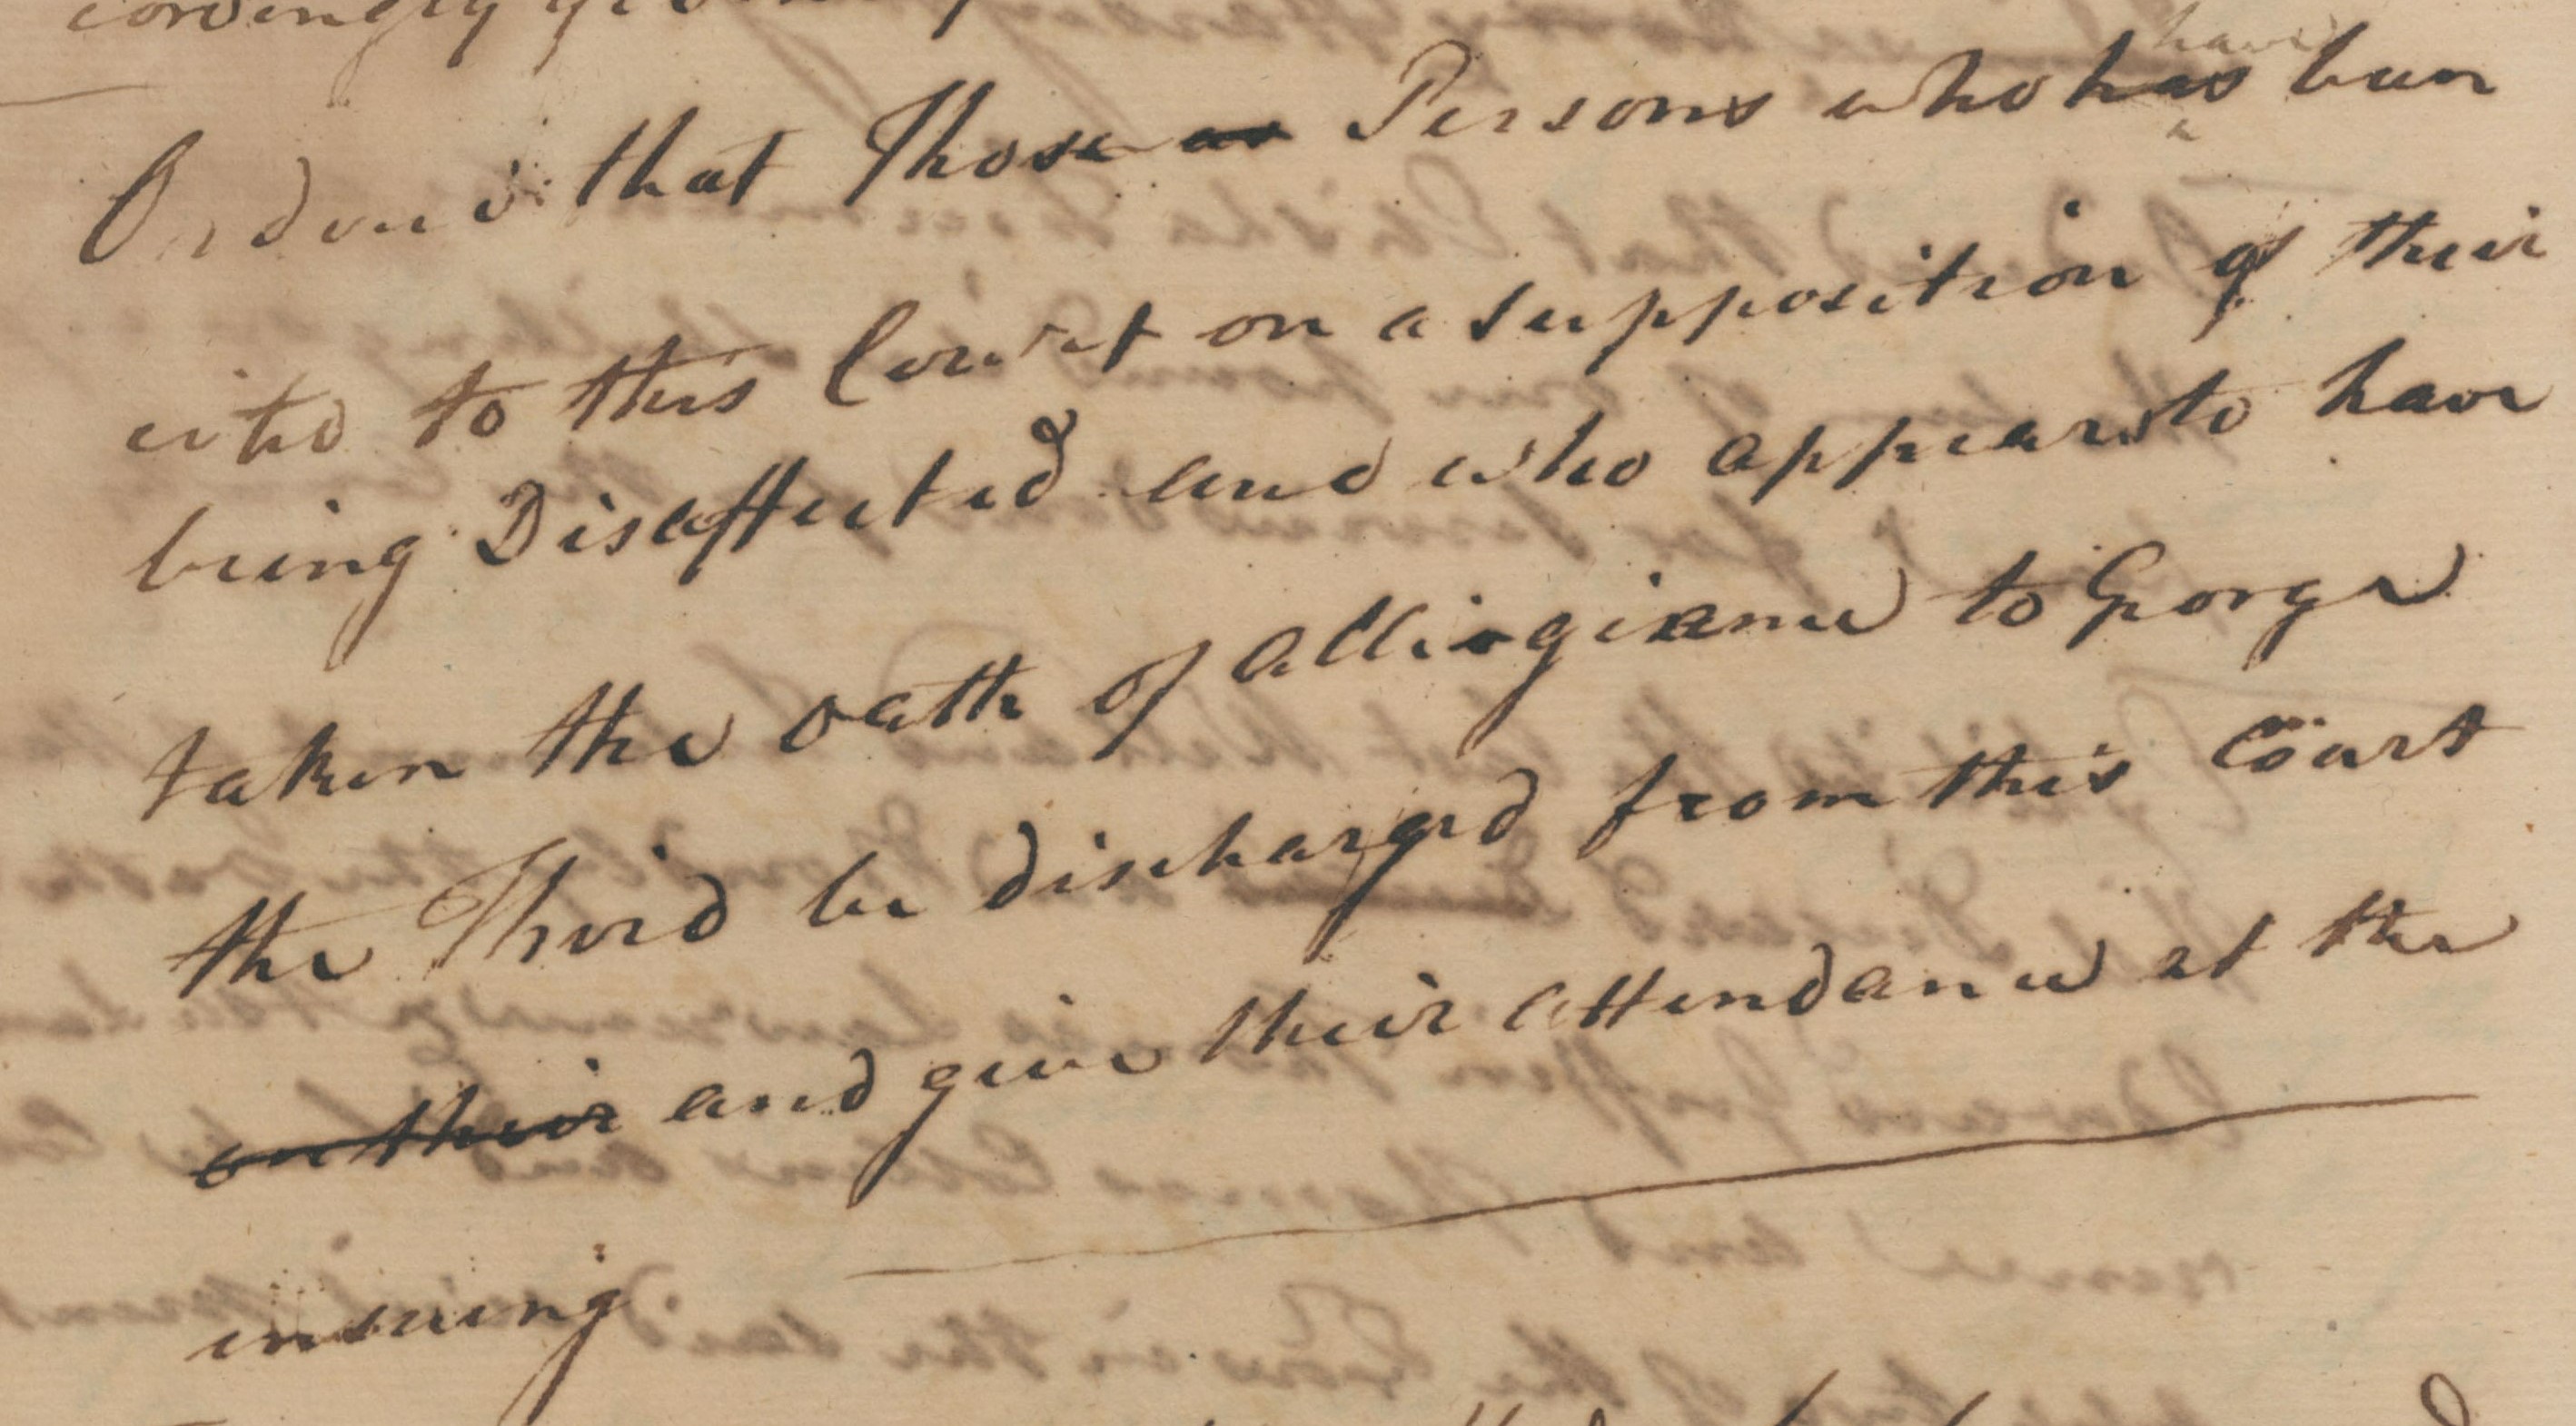 cordingly
Ordered that Those Persons who has have been
cited to this Court on a supposition of their
being Disaffected and who appears to have
taken the oath of allegiance to George
the Third be discharged from this Court
on their and give their attendance at the
insuing